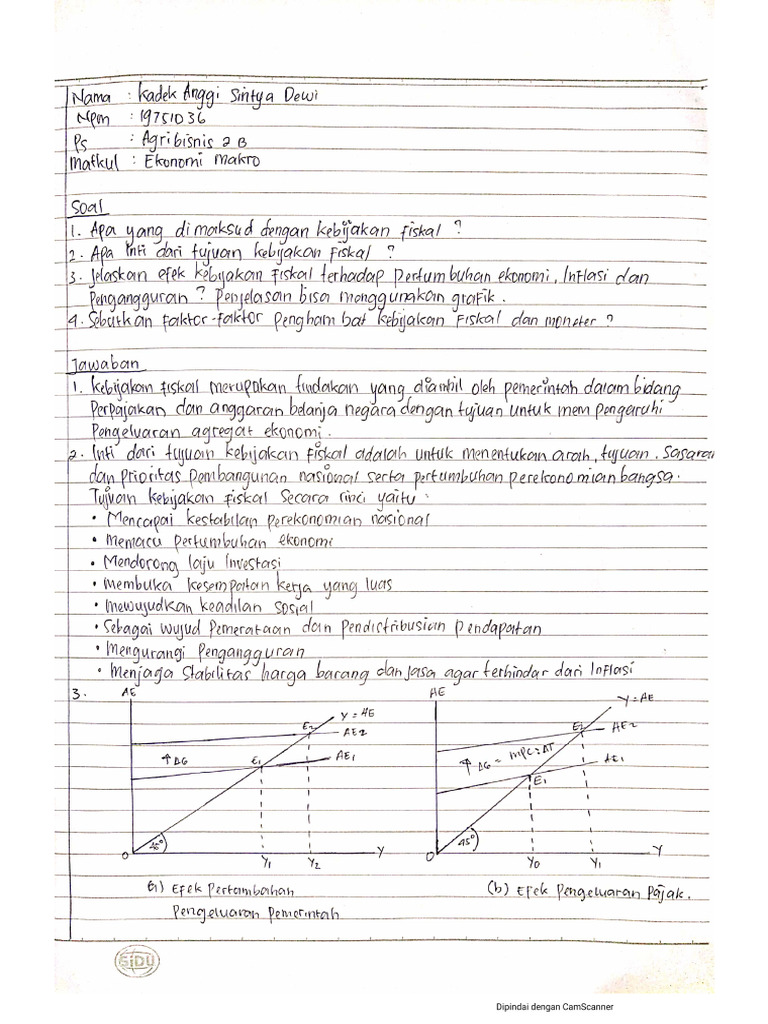 Nama : Kadek Anggi Sintya Dewi
Npm : 19751036
Ps : Agribisnis 2B
Matkul : Ekonomi Makro
Soal
1. Apa yang dimaksud dengan kebijakan fiskal ?
2. Apa inti dari tujuan kebijakan fiskal ?
3. Jelaskan efek kebijakan fiskal terhadap pertumbuhan ekonomi, Inflasi dan
Pengangguran ? Penjelasan bisa menggunakan grafik.
4. Sebutkan faktor-faktor penghambat kebijakan fiskal dan moneter ?
Jawaban
1. Kebijakan fiskal merupakan tindakan yang diambil oleh pemerintah dalam bidang
Perpajakan dan anggaran belanja negara dengan tujuan untuk mempengaruhi
Pengeluaran agregat ekonomi.
2. Inti dari tujuan kebijakan fiskal adalah untuk menentukan arah, tujuan. Sasaran
dan prioritas pembangunan nasional serta pertumbuhan perekonomian bangsa.
Tujuan kebijakan fiskal secara rinci yaitu :
• Mencapai kestabilan perekonomian nasional
• Memacu pertumbuhan ekonomi
• Mendorong laju Investasi
• Membuka kesempatan kerja yang luas
• Mewujudkan keadilan sosial
• Sebagai wujud pemerataan dan pendistribusian pendapatan
• Mengurangi Pengangguran
• Menjaga stabilitas harga barang dan jasa agar terhindar dari Inflasi
3.
AE
Y = AE
E2
AE2
↑ ΔG
E1
AE1
45°
0
Y1
Y2
Y
a) Efek Pertambahan
Pengeluaran Pemerintah
AE
Y = AE
E2
AE2
↑ ΔG = MPC = ΔT
AE1
E1
45°
0
Y0
Y1
Y
(b) Efek Pengeluaran Pajak.
SIDU
Dipindai dengan CamScanner